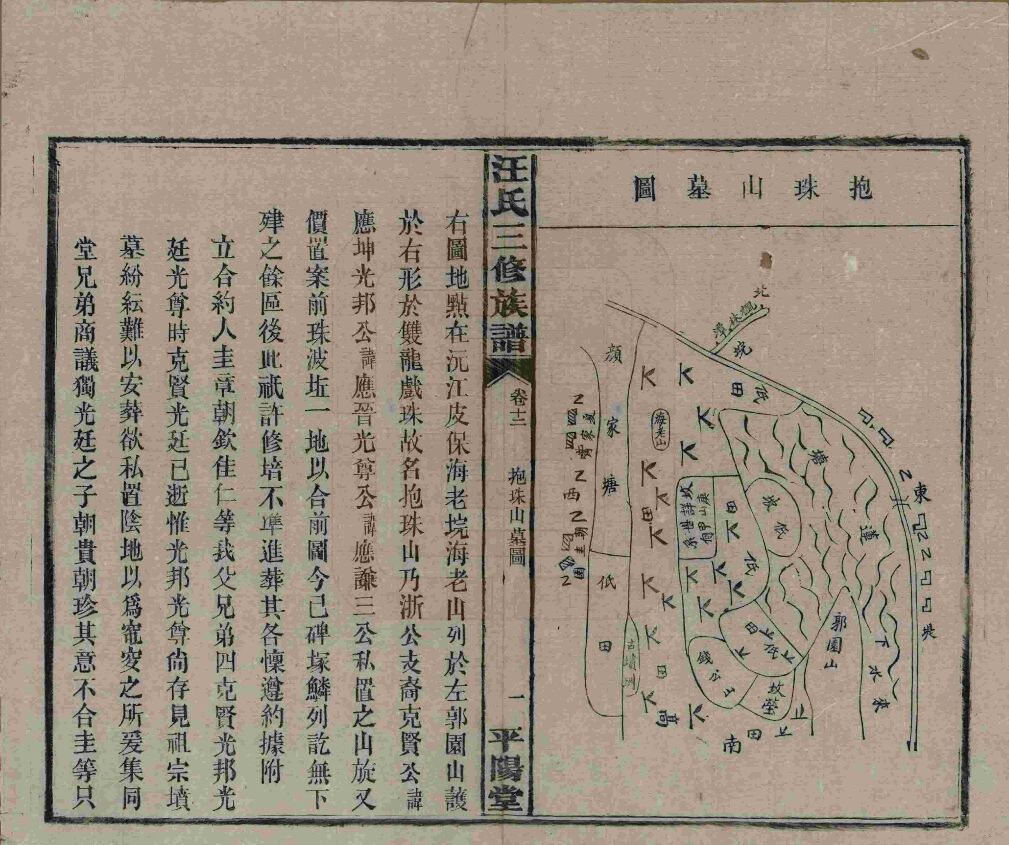 抱珠山墓圖
北
坑
田
低
塘
蓮
東
堤
下
水
來
郭園山
低
田
錢公山
墳塋
南
田
海老山
顏家塘
低
田
西
田
田
汪氏三修族譜
卷十二
抱珠山墓圖
一
平陽堂
右圖地點在沅江皮保海老垸海老山列於左郭園山護
於右形於雙龍戲珠故名抱珠山乃浙公支裔克賢公諱
應坤光邦公諱應晉光尊公諱應謙三公私置之山旋又
價置案前珠波坵一地以合前圖今已碑塚鱗列訖無下
肂之餘區後此祇許修培不準進葬其各懍遵約據附
立合約人圭章朝欽佳仁等我父兄弟四克賢光邦光
廷光尊時克賢光廷已逝惟光邦光尊尙存見祖宗墳
墓紛紜難以安葬欲私置陰地以爲窀穸之所爰集同
堂兄弟商議獨光廷之子朝貴朝珍其意不合圭等只